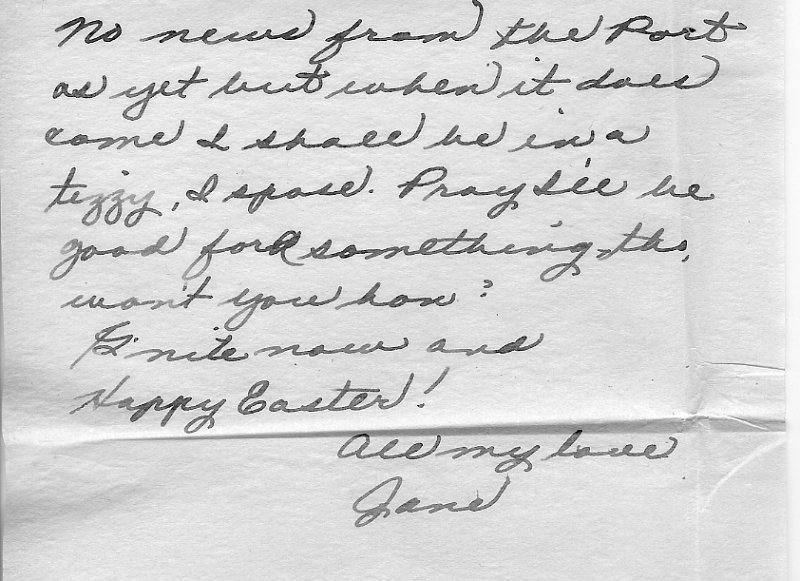 No news from the Port
as yet but when it does
come I shall be in a
tizzy, I spose. Pray I'll be
good for something, tho,
won't you hon?
G'nite now and
Happy Easter!
All my love
Jane